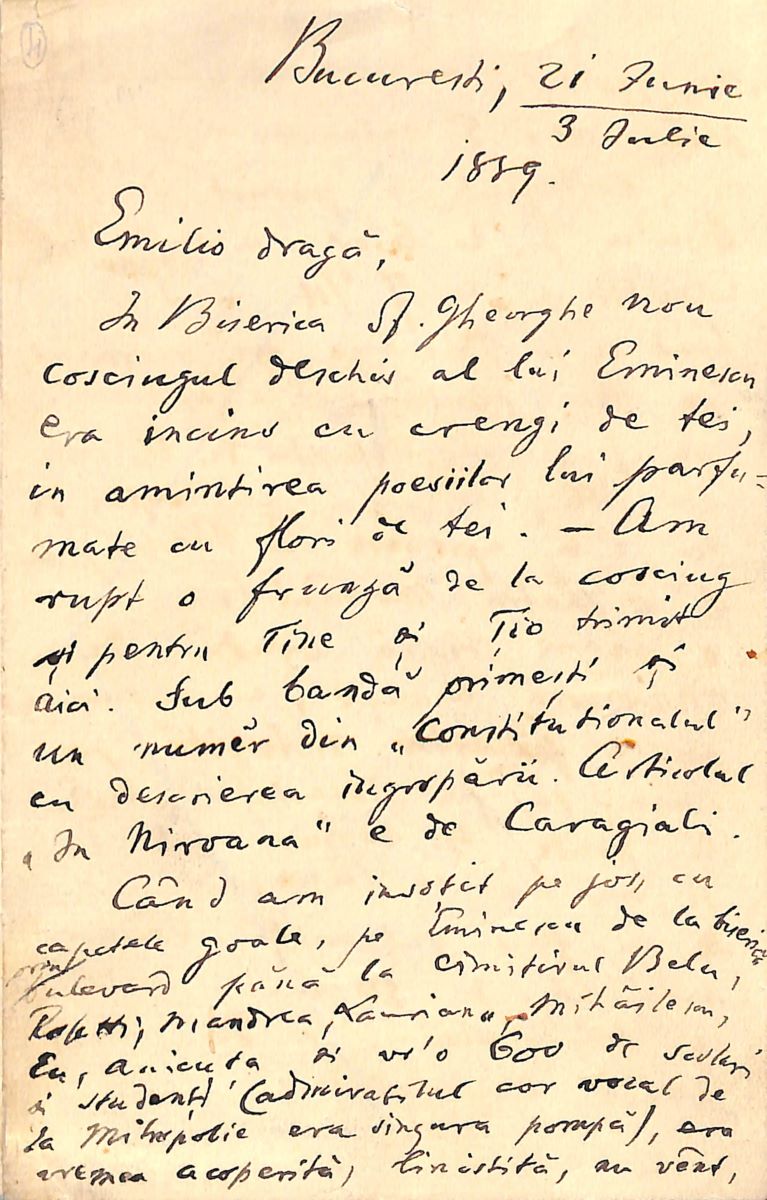 Bucuresti, 21 Junie
3 Julie
1889.
Emilio dragă,
In Biserica Sf. Gheorghe nou
cosciugul deschis al lui Eminescu
era incins cu crengi de tei,
in amintirea poesiilor lui parfu-
mate cu flori de tei. — Am
rupt o frunză de la cosciug
și pentru Tine și Țio trimit
aici. Sub bandă primești și
un numĕr din „Constitutionalul"
cu descrierea ingropării. Articolul
„In Nirvana" e de Caragiali.
Când am insoțit pe jos, cu
capetele goale, pe Eminescu de la biserică
prin bulevard până la cimitirul Belu,
Rosetti, Mandrea, Laurian, Mihăilescu,
Eu, Anicuța și vr'o 600 de scolari
si studenți (admirabilul cor vocal de
la Mitropolie era singura pompă), era
vremea acoperită, linistită, nu vênt,